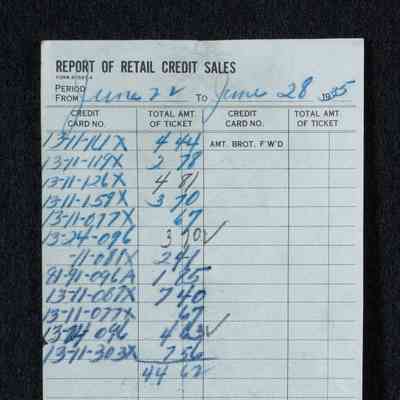 REPORT OF RETAIL CREDIT SALES
PERIOD
FROM June 22 To June 28 1935
CREDIT CARD NO. TOTAL AMT. OF TICKET CREDIT CARD NO. TOTAL AMT. OF TICKET
13-11-161X 4 44 AMT. BROT. F'W'D
13-11-119X 2 78
13-11-126X 4 81
13-11-159X 3 70
13-11-077X 67
13-24-096 3 70✓
-11-081X 2 41
91-91-096A 1 85
13-11-067X 7 40
13-11-077X 67
13-24 096 4 63✓
13-11-303X 7 56
44 62